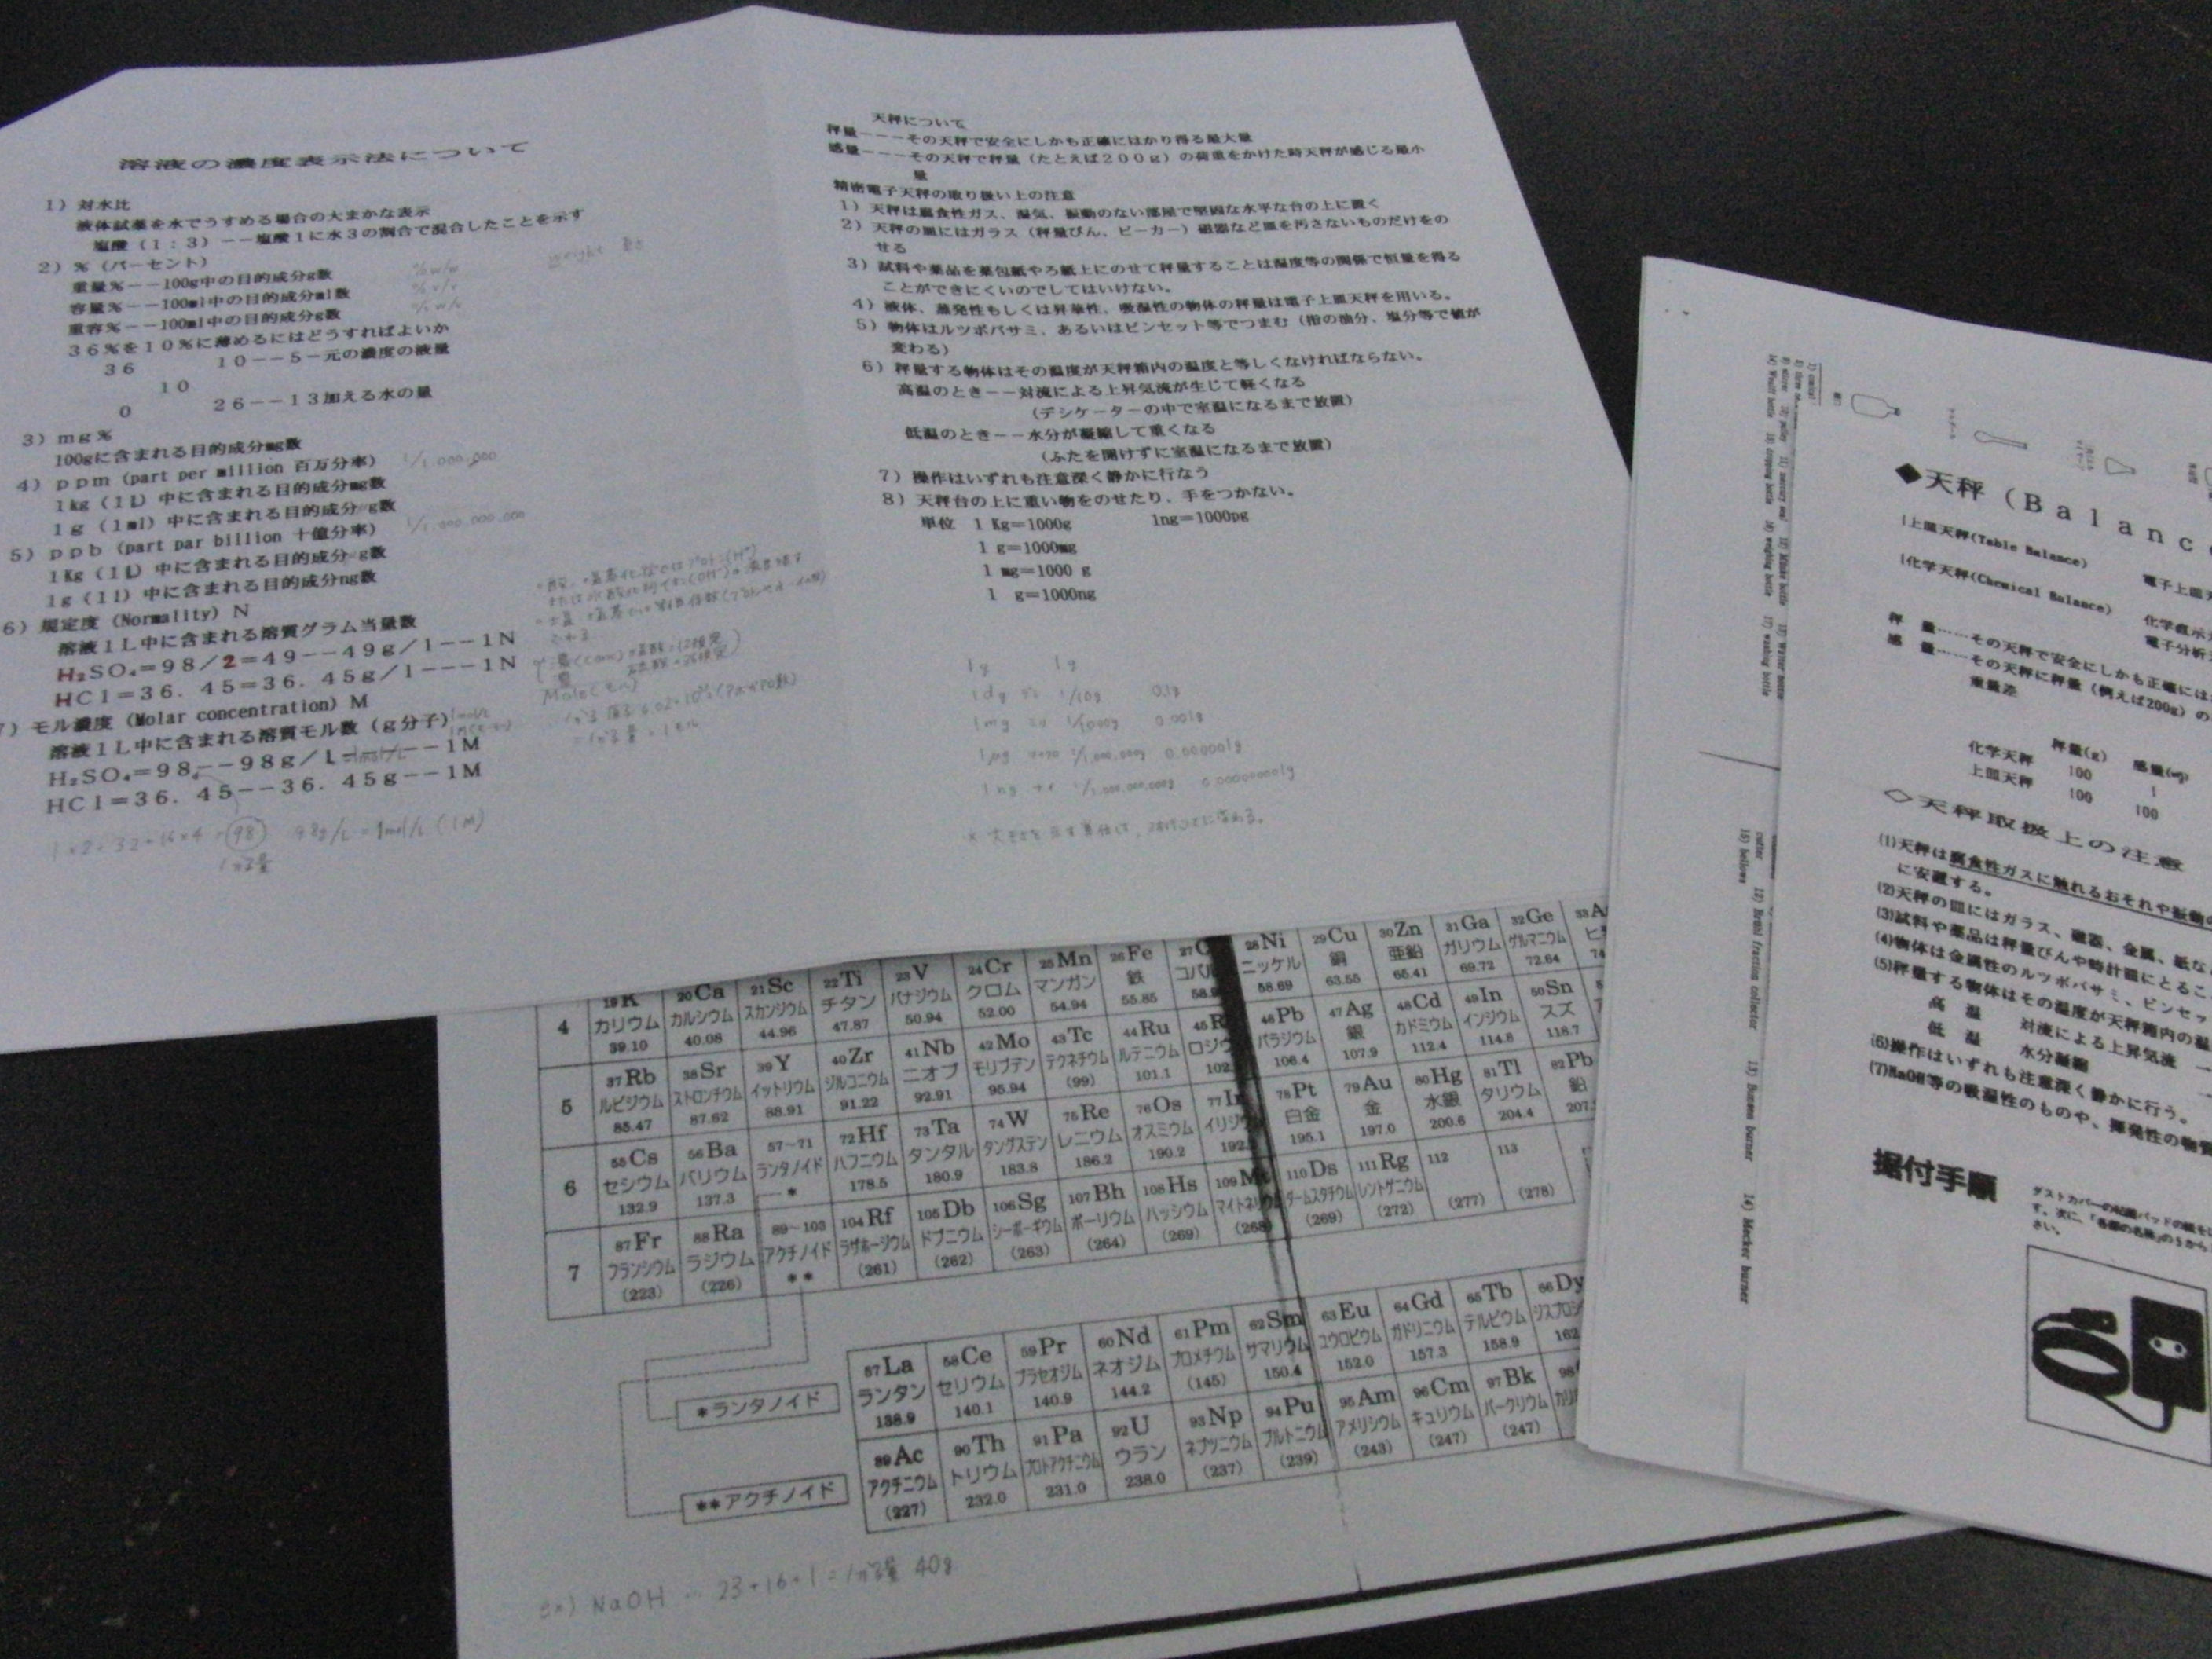 溶液の濃度表示法について
1）対水比
液体試薬を水でうすめる場合の大まかな表示
塩酸（1：3）－－塩酸1に水3の割合で混合したことを示す
2）％（パーセント）
重量％－－100g中の目的成分g数 % w/w
容量％－－100ml中の目的成分ml数 % v/v
重容％－－100ml中の目的成分g数 % w/v
weight
36％を10％に薄めるにはどうすればよいか
36 10－－5－元の濃度の液量
10
0 26－－13加える水の量
3）mg％
100gに含まれる目的成分mg数
4）ppm（part per million 百万分率） 1/1,000,000
1kg（1L）中に含まれる目的成分mg数
1g（1ml）中に含まれる目的成分 g数
5）ppb（part par billion 十億分率） 1/1,000,000,000
1Kg（1L）中に含まれる目的成分 g数
1g（1l）中に含まれる目的成分ng数
6）規定度（Normality）N
溶液1L中に含まれる溶質グラム当量数
H₂SO₄＝98／2＝49－－49g／l－－1N
HCl＝36．45＝36．45g／l－－－1N
7）モル濃度（Molar concentration）M
溶液1L中に含まれる溶質モル数（g分子）
H₂SO₄＝98－－98g／L＝1mol/L－－1M
HCl＝36．45－－36．45g－－1M
1×2+32+16×4=98 98g/L=1mol/L (1M)
天秤について
秤量－－－その天秤で安全にしかも正確にはかり得る最大量
感量－－－－その天秤で秤量（たとえば200g）の荷重をかけた時天秤が感じる最小
量
精密電子天秤の取り扱い上の注意
1）天秤は腐食性ガス、湿気、振動のない部屋で堅固な水平な台の上に置く
2）天秤の皿にはガラス（秤量びん、ビーカー）磁器など皿を汚さないものだけをの
せる
3）試料や薬品を薬包紙やろ紙上にのせて秤量することは湿度等の関係で恒量を得る
ことができにくいのでしてはいけない。
4）液体、蒸発性もしくは昇華性、吸湿性の物体の秤量は電子上皿天秤を用いる。
5）物体はルツボバサミ、あるいはピンセット等でつまむ（指の油分、塩分等で値が
変わる）
6）秤量する物体はその温度が天秤箱内の温度と等しくなければならない。
高温のとき－－対流による上昇気流が生じて軽くなる
（デシケーターの中で室温になるまで放置）
低温のとき－－水分が凝縮して重くなる
（ふたを開けずに室温になるまで放置）
7）操作はいずれも注意深く静かに行なう
8）天秤台の上に重い物をのせたり、手をつかない。
単位 1 Kg＝1000g 1ng＝1000pg
1 g＝1000mg
1 mg＝1000 g
1 g＝1000ng
1g 1g
1dg 1/10g 0.1g
1mg 1/1000g 0.001g
1μg 1/1,000,000g 0.000001g
1ng 1/1,000,000,000g 0.000000001g
4 19K 20Ca 21Sc 22Ti 23V 24Cr 25Mn 26Fe 27C 28Ni 29Cu 30Zn 31Ga 32Ge 33A
カリウム カルシウム スカンジウム チタン バナジウム クロム マンガン 鉄 コバル ニッケル 銅 亜鉛 ガリウム ゲルマニウム ヒ
39.10 40.08 44.96 47.87 50.94 52.00 54.94 55.85 58.9 58.69 63.55 65.41 69.72 72.64 74
5 37Rb 38Sr 39Y 40Zr 41Nb 42Mo 43Tc 44Ru 45R 46Pb 47Ag 48Cd 49In 50Sn
ルビジウム ストロンチウム イットリウム ジルコニウム ニオブ モリブデン テクネチウム ルテニウム ロジウ パラジウム 銀 カドミウム インジウム スズ
85.47 87.62 88.91 91.22 92.91 95.94 (99) 101.1 102. 106.4 107.9 112.4 114.8 118.7
6 55Cs 56Ba 57～71 72Hf 73Ta 74W 75Re 76Os 77Ir 78Pt 79Au 80Hg 81Tl 82Pb
セシウム バリウム ランタノイド ハフニウム タンタル タングステン レニウム オスミウム イリジウ 白金 金 水銀 タリウム 鉛
132.9 137.3 * 178.5 180.9 183.8 186.2 190.2 192. 195.1 197.0 200.6 204.4 207.
7 87Fr 88Ra 89～103 104Rf 105Db 106Sg 107Bh 108Hs 109Mt 110Ds 111Rg 112 113
フランシウム ラジウム アクチノイド ラザホージウム ドブニウム シーボーギウム ボーリウム ハッシウム マイトネリウム ダームスタチウム レントゲニウム
(223) (226) ** (261) (262) (263) (264) (269) (268) (269) (272) (277) (278)
*ランタノイド 57La 58Ce 59Pr 60Nd 61Pm 62Sm 63Eu 64Gd 65Tb 66Dy
ランタン セリウム プラセオジム ネオジム プロメチウム サマリウム ユウロピウム ガドリニウム テルビウム ジスプロシ
138.9 140.1 140.9 144.2 (145) 150.4 152.0 157.3 158.9 162
**アクチノイド 89Ac 90Th 91Pa 92U 93Np 94Pu 95Am 96Cm 97Bk 98
アクチニウム トリウム プロトアクチニウム ウラン ネプツニウム プルトニウム アメリシウム キュリウム バークリウム カリ
(227) 232.0 231.0 238.0 (237) (239) (243) (247) (247)
ex) NaOH … 23+16+1=1分子量 40g
◆天秤（Balance
上皿天秤(Table Balance) 電子上皿天
化学天秤(Chemical Balance) 化学直示天
電子分析
秤 量……その天秤で安全にしかも正確には
感 量……その天秤に秤量（例えば200g）の
重量差
秤量(g) 感量(mg)
化学天秤 100 1
上皿天秤 100 100
◇天秤取扱上の注意
(1)天秤は腐食性ガスに触れるおそれや振動の
に安置する。
(2)天秤の皿にはガラス、磁器、金属、紙な
(3)試料や薬品は秤量びんや時計皿にとるこ
(4)物体は金属性のルツボバサミ、ピンセッ
(5)秤量する物体はその温度が天秤箱内の温
高 温 対流による上昇気流
低 温 水分凝縮
(6)操作はいずれも注意深く静かに行う。
(7)NaOH等の吸湿性のものや、揮発性の物質
据付手順
さい。
15) bellows
12) Brühl fraction collector
13) Bunsen burner
14) Mecker burner
17) washing bottle